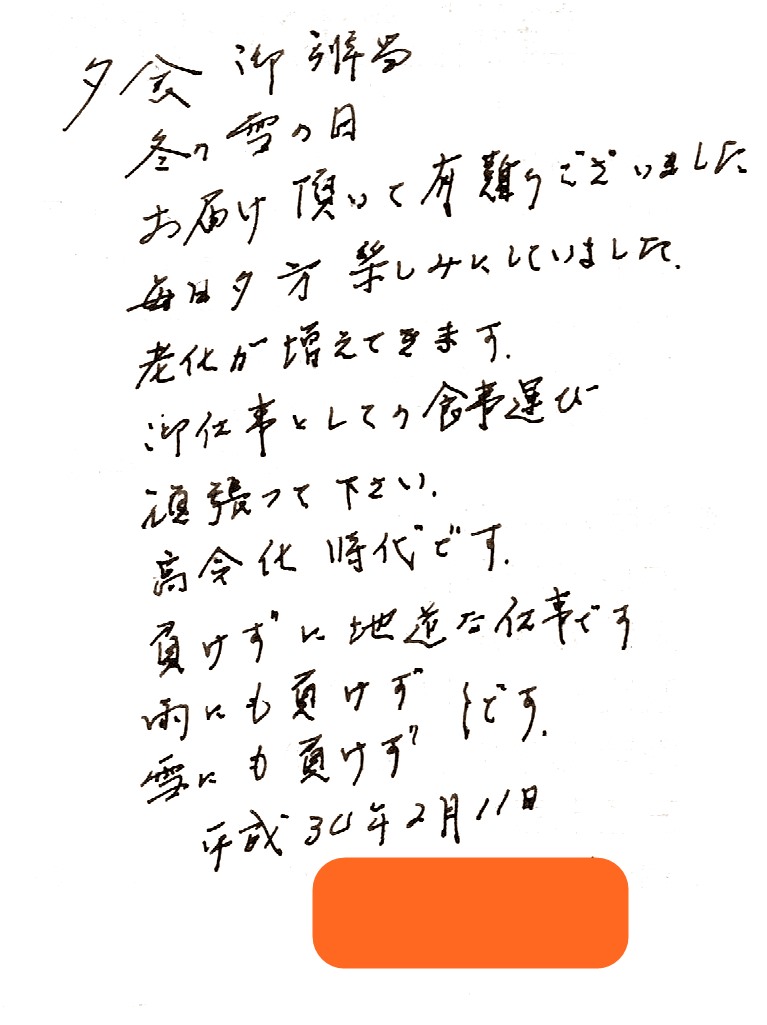 夕食 御弁当
冬の雪の日
お届け頂いて有難うございました
毎日夕方楽しみにしていました.
老化が増えてきます.
御仕事としての食事運び
頑張って下さい.
高令化時代です.
負けずに地道な仕事です
雨にも負けず
雪にも負けず }です.
平成30年2月11日